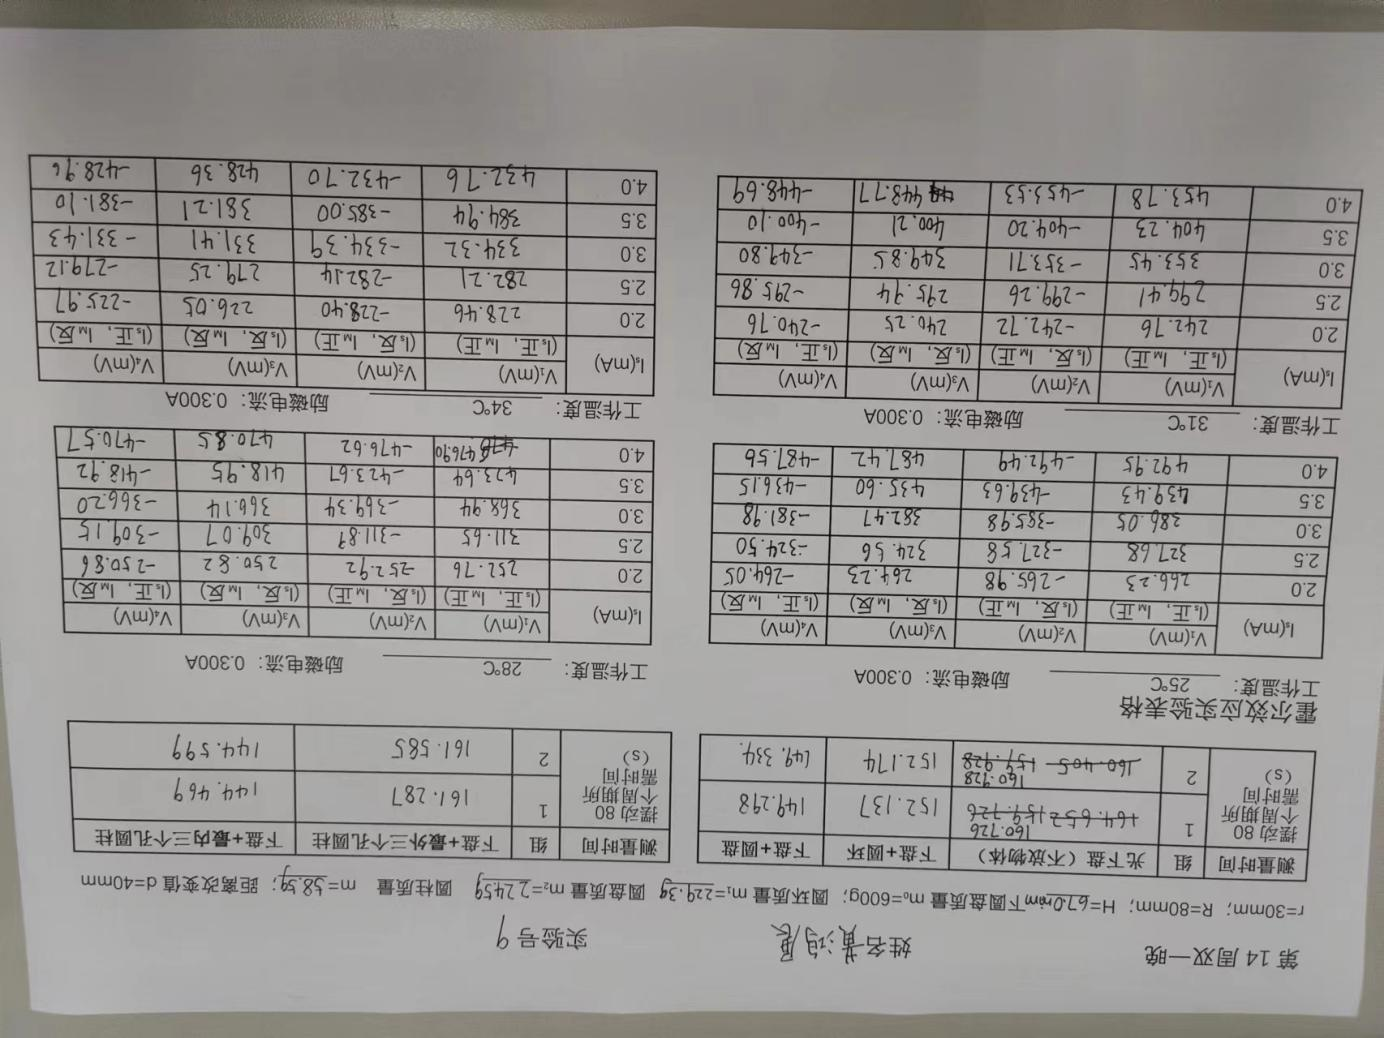 第 14 周双一晚 姓名 黄鸿展 实验号 9
r=30mm; R=80mm; H=670mm下圆盘质量 m₀=600g; 圆环质量 m₁=229.3g 圆盘质量 m₂=224.5g 圆柱质量 m=38.5g; 距离改变值 d=40mm
测量时间 组 光下盘（不放物体） 下盘+圆环 下盘+圆盘
摆动 80个周期所需时间（s） 1 160.726 152.137 149.298
2 160.928 152.174 149.334
测量时间 组 下盘+最外三个孔圆柱 下盘+最内三个孔圆柱
摆动 80个周期所需时间（s） 1 161.287 144.469
2 161.585 144.599
霍尔效应实验表格
工作温度: 25℃ 励磁电流: 0.300A
Iₛ(mA) V₁(mV) V₂(mV) V₃(mV) V₄(mV)
(Iₛ正, Iᴍ正) (Iₛ反, Iᴍ正) (Iₛ反, Iᴍ反) (Iₛ正, Iᴍ反)
2.0 266.23 -265.98 264.23 -264.05
2.5 327.68 -327.58 324.56 -324.50
3.0 386.05 -385.98 382.47 -381.98
3.5 439.43 -439.63 435.60 -436.15
4.0 492.95 -492.49 487.42 -487.56
工作温度: 28℃ 励磁电流: 0.300A
Iₛ(mA) V₁(mV) V₂(mV) V₃(mV) V₄(mV)
(Iₛ正, Iᴍ正) (Iₛ反, Iᴍ正) (Iₛ反, Iᴍ反) (Iₛ正, Iᴍ反)
2.0 252.76 -252.92 250.82 -250.86
2.5 311.65 -311.89 309.07 -309.15
3.0 368.94 -369.34 366.14 -366.20
3.5 423.64 -423.67 418.95 -418.92
4.0 476.90 -476.62 470.85 -470.57
工作温度: 31℃ 励磁电流: 0.300A
Iₛ(mA) V₁(mV) V₂(mV) V₃(mV) V₄(mV)
(Iₛ正, Iᴍ正) (Iₛ反, Iᴍ正) (Iₛ反, Iᴍ反) (Iₛ正, Iᴍ反)
2.0 242.76 -242.72 240.25 -240.76
2.5 299.41 -299.26 295.94 -295.86
3.0 353.45 -353.71 349.85 -349.80
3.5 404.23 -404.20 400.21 -400.10
4.0 453.78 -453.53 448.77 -448.69
工作温度: 34℃ 励磁电流: 0.300A
Iₛ(mA) V₁(mV) V₂(mV) V₃(mV) V₄(mV)
(Iₛ正, Iᴍ正) (Iₛ反, Iᴍ正) (Iₛ反, Iᴍ反) (Iₛ正, Iᴍ反)
2.0 228.46 -228.40 226.05 -225.97
2.5 282.21 -282.14 279.25 -279.12
3.0 334.32 -334.39 331.41 -331.43
3.5 384.94 -385.00 381.21 -381.10
4.0 432.76 -432.70 428.36 -428.96